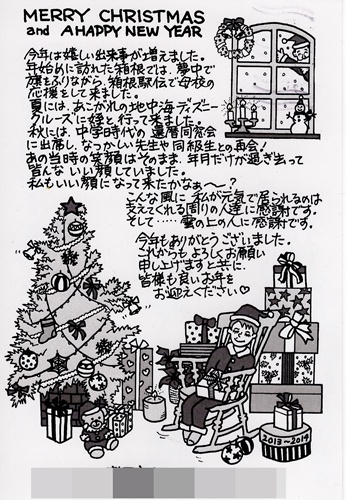 MERRY CHRISTMAS
and A HAPPY NEW YEAR
今年は嬉しい出来事が増えました。
年始めに訪れた箱根では、夢中で
旗をふりながら、箱根駅伝で母校の
応援をして来ました。
夏には、あこがれの地中海ディズニー
クルーズに娘と行って来ました。
秋には、中学時代の還暦同窓会
に出席し、なつかしい先生や同級生との再会!
あの当時の笑顔はそのまま、年月だけが過ぎ去って
皆んないい顔していました。
私もいい顔になって来たかなぁ〜?
こんな風に私が元気で居られるのは
支えてくれる周りの人達に感謝です。
そして……雲の上の人に感謝です。
今年もありがとうございました。
これからもよろしくお願い
申し上げますと共に、
皆様も良いお年を
お迎えください♡
2013~2014